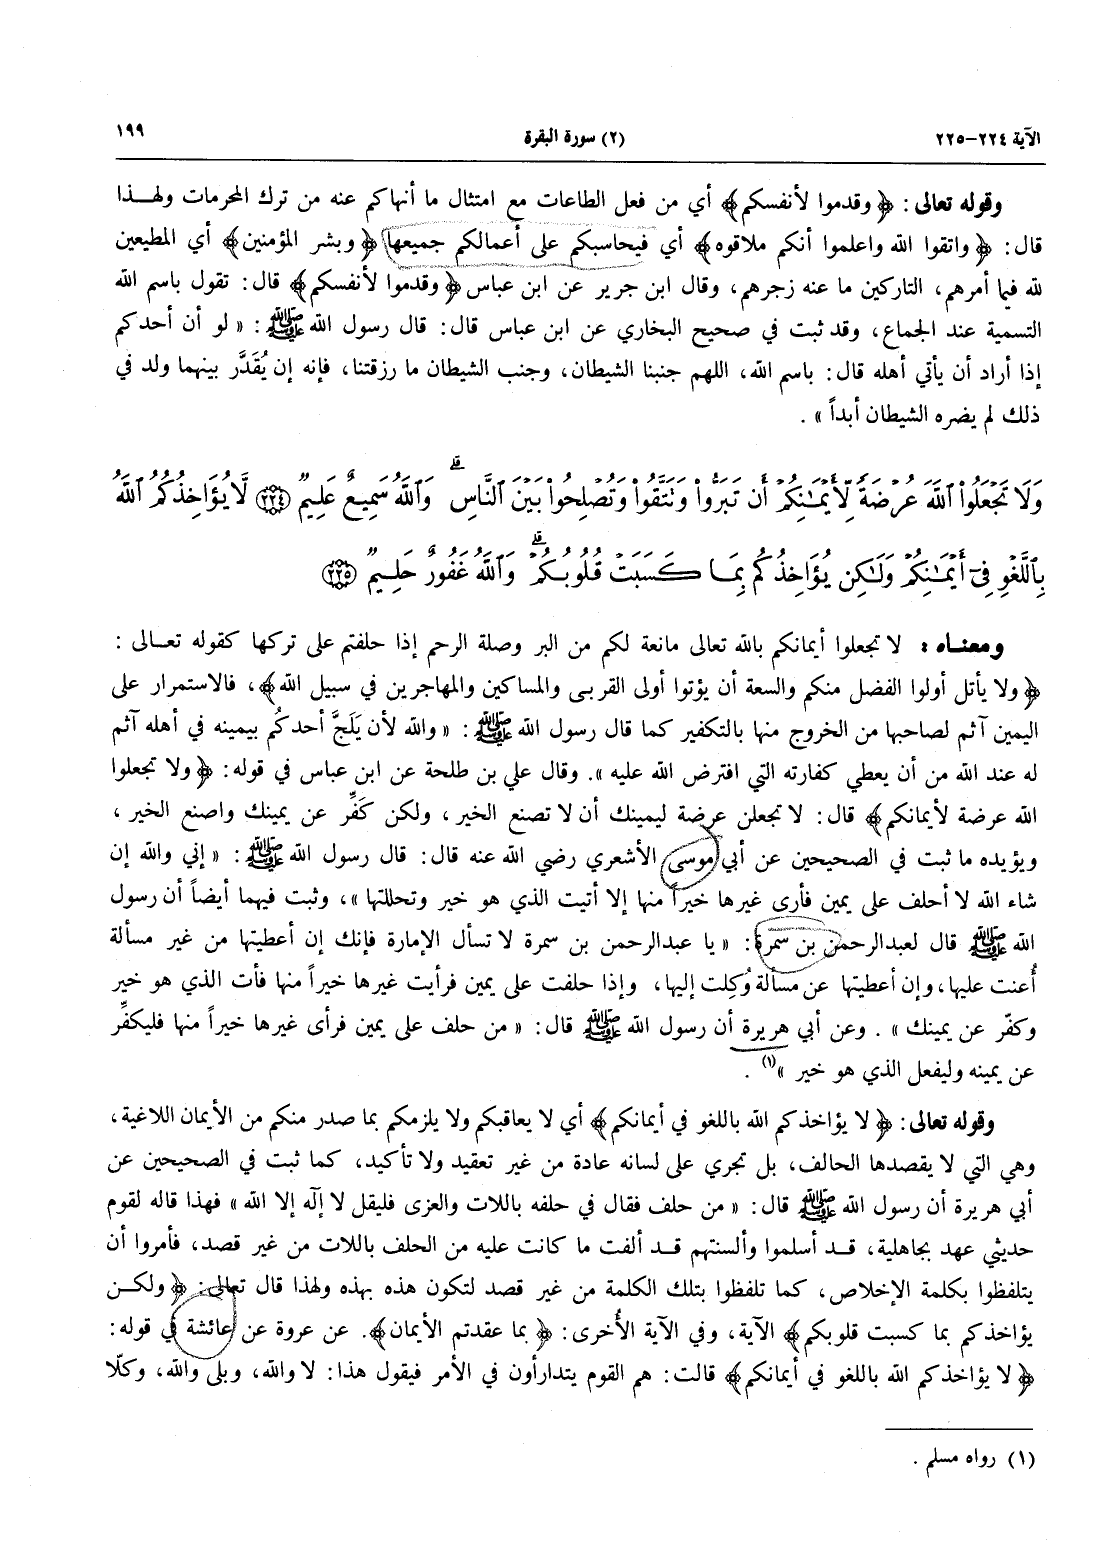 الآية ٢٢٤-٢٢٥ (٢) سورة البقرة ١٩٩
وقوله تعالى : ﴿ وقدموا لأنفسكم ﴾ أي من فعل الطاعات مع امتثال ما أنهاكم عنه من ترك المحرمات ولهـذا
قال : ﴿ واتقوا الله واعلموا أنكم ملاقوه ﴾ أي فيحاسبكم على أعمالكم جميعها ﴿ وبشر المؤمنين ﴾ أي المطيعين
لله فيما أمرهم، التاركين ما عنه زجرهم، وقال ابن جرير عن ابن عباس ﴿ وقدموا لأنفسكم ﴾ قال : تقول باسم الله
التسمية عند الجماع، وقد ثبت في صحيح البخاري عن ابن عباس قال : قال رسول الله ﷺ : « لو أن أحدكم
إذا أراد أن يأتي أهله قال : باسم الله، اللهم جنبنا الشيطان، وجنب الشيطان ما رزقتنا، فإنه إن يُقَدَّر بينهما ولد في
ذلك لم يضره الشيطان أبداً » .
وَلَا تَجْعَلُوا۟ ٱللَّهَ عُرْضَةً لِّأَيْمَـٰنِكُمْ أَن تَبَرُّوا۟ وَتَتَّقُوا۟ وَتُصْلِحُوا۟ بَيْنَ ٱلنَّاسِ ۗ وَٱللَّهُ سَمِيعٌ عَلِيمٌ ﴿٢٢٤﴾ لَّا يُؤَاخِذُكُمُ ٱللَّهُ
بِٱللَّغْوِ فِىٓ أَيْمَـٰنِكُمْ وَلَـٰكِن يُؤَاخِذُكُم بِمَا كَسَبَتْ قُلُوبُكُمْ ۗ وَٱللَّهُ غَفُورٌ حَلِيمٌ ﴿٢٢٥﴾
ومعنـاه : لا تجعلوا أيمانكم بالله تعالى مانعة لكم من البر وصلة الرحم إذا حلفتم على تركها كقوله تعـالى :
﴿ ولا يأتل أولوا الفضل منكم والسعة أن يؤتوا أولى القربى والمساكين والمهاجرين في سبيل الله ﴾، فالاستمرار على
اليمين آثم لصاحبها من الخروج منها بالتكفير كما قال رسول الله ﷺ : « والله لأن يَلَجَّ أحدكُم بيمينه في أهله آثم
له عند الله من أن يعطي كفارته التي افترض الله عليه ». وقال علي بن طلحة عن ابن عباس في قوله : ﴿ ولا تجعلوا
الله عرضة لأيمانكم ﴾ قال : لا تجعلن عرضة ليمينك أن لا تصنع الخير ، ولكن كَفِّر عن يمينك واصنع الخير ،
ويؤيده ما ثبت في الصحيحين عن أبي موسى الأشعري رضي الله عنه قال : قال رسول الله ﷺ : « إني والله إن
شاء الله لا أحلف على يمين فأرى غيرها خيراً منها إلا أتيت الذي هو خير وتحللتها »، وثبت فيهما أيضاً أن رسول
الله ﷺ قال لعبدالرحمن بن سمرة : « يا عبدالرحمن بن سمرة لا تسأل الإمارة فإنك إن أعطيتها من غير مسألة
أُعنت عليها، وإن أعطيتها عن مسألة وُكِلت إليها، وإذا حلفت على يمين فرأيت غيرها خيراً منها فأت الذي هو خير
وكفّر عن يمينك » . وعن أبي هريرة أن رسول الله ﷺ قال : « من حلف على يمين فرأى غيرها خيراً منها فليكفِّر
عن يمينه وليفعل الذي هو خير »(١) .
وقوله تعالى : ﴿ لا يؤاخذكم الله باللغو في أيمانكم ﴾ أي لا يعاقبكم ولا يلزمكم بما صدر منكم من الأيمان اللاغية،
وهي التي لا يقصدها الحالف، بل تجري على لسانه عادة من غير تعقيد ولا تأكيد، كما ثبت في الصحيحين عن
أبي هريرة أن رسول الله ﷺ قال : « من حلف فقال في حلفه باللات والعزى فليقل لا إلٓه إلا الله » فهذا قاله لقوم
حديثي عهد بجاهلية، قـد أسلموا وألسنتهم قـد ألفت ما كانت عليه من الحلف باللات من غير قصد، فأمروا أن
يتلفظوا بكلمة الإخلاص، كما تلفظوا بتلك الكلمة من غير قصد لتكون هذه بهذه ولهذا قال تعالى : ﴿ ولكـن
يؤاخذكم بما كسبت قلوبكم ﴾ الآية، وفي الآية الأُخرى : ﴿ بما عقدتم الأيمان ﴾. عن عروة عن عائشة في قوله :
﴿ لا يؤاخذكم الله باللغو في أيمانكم ﴾ قالت : هم القوم يتدارأون في الأمر فيقول هذا : لا والله، وبلى والله، وكلّا
(١) رواه مسلم .